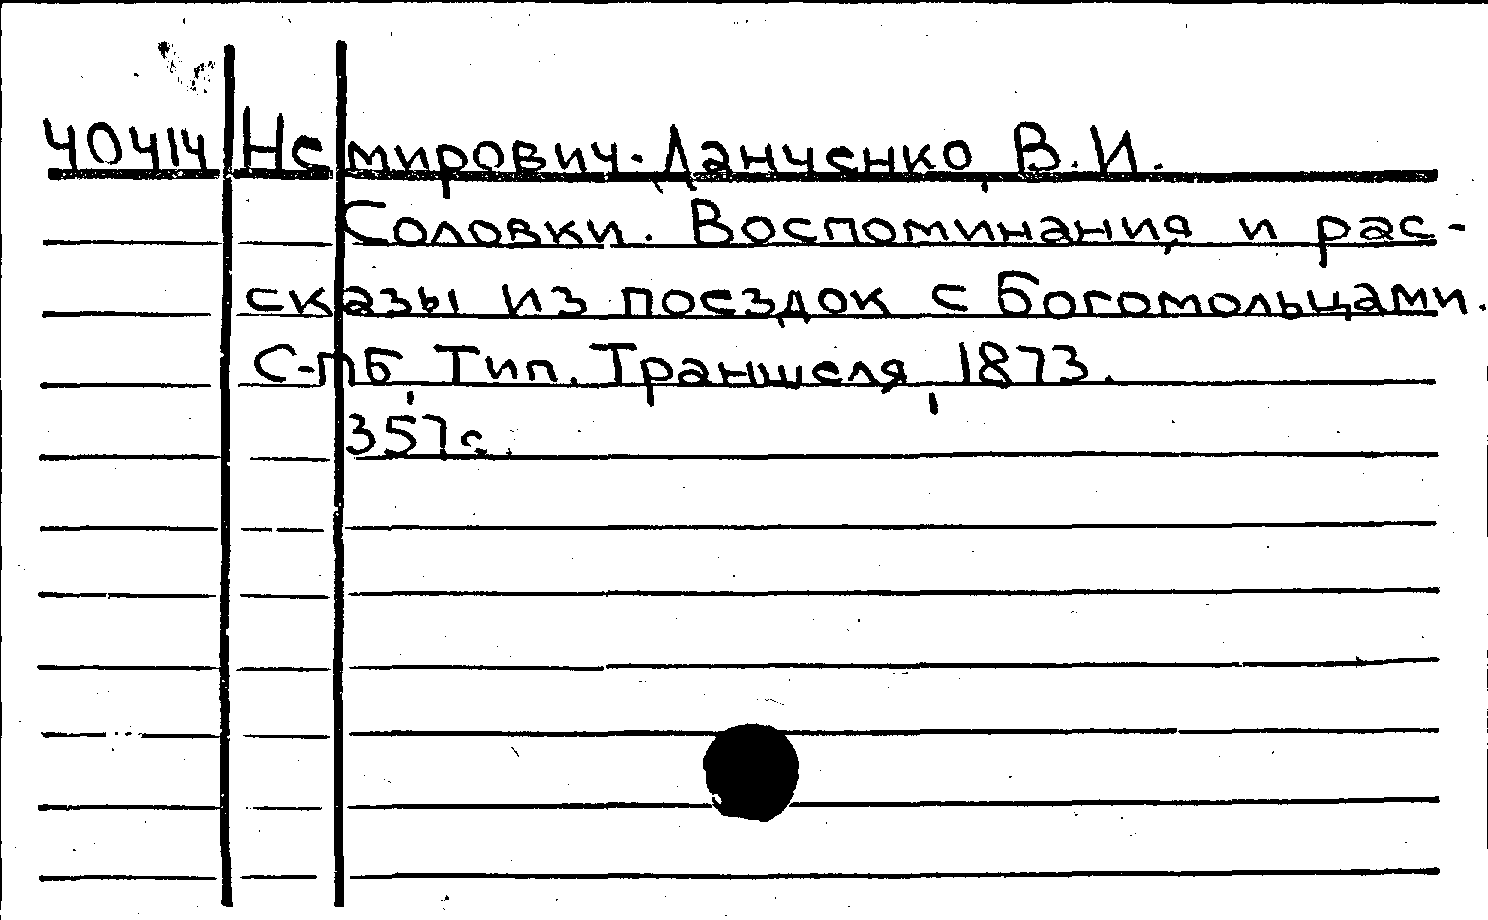 40414 Немирович-Данченко, В.И.
Соловки. Воспоминания и рас-
сказы из поездок с богомольцами.
С-пБ, Тип. Траншеля, 1873.
357с.